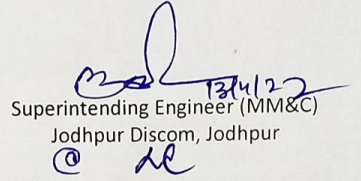 13/4/22
Superintending Engineer (MM&C)
Jodhpur Discom, Jodhpur
@